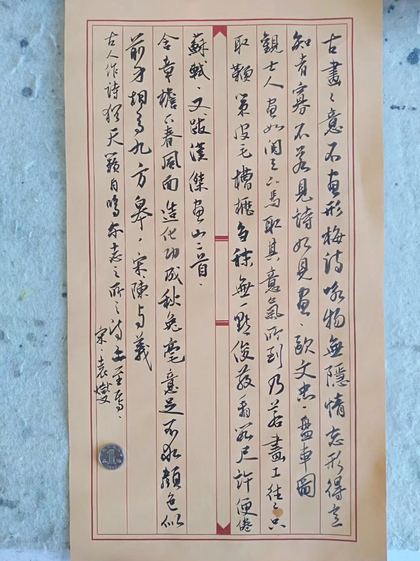 古畫々意不畫形梅詩咏物無隱情忘形得意
知者寡不若見詩如見畫。歐文忠。盤車圖
觀士人畫如閱天下馬取其意氣所到乃若畫工往往只
取鞭策皮毛槽櫪芻秣無一點俊發看數尺許便倦
蘇軾。又跋漢傑畫山二首。
含章檐下春風面造化功成秋兔毫意足不求顏色似
前身相馬九方皋。宋陳與義
古人作詩猶天籟自鳴尔志之所之詩亦至焉。
宋袁燮